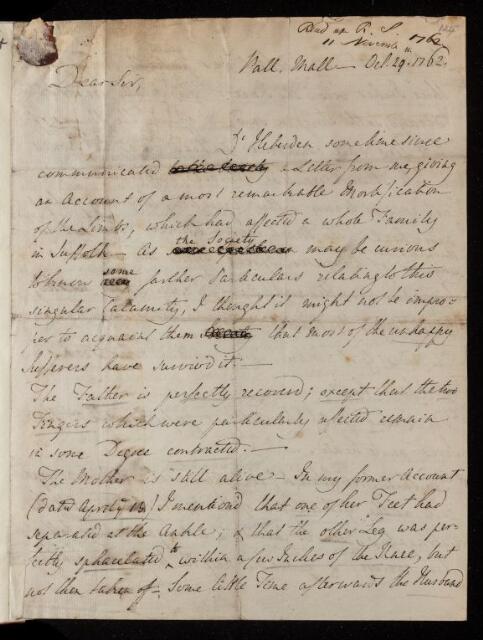 Read at R. S.
11 Novemb. 1762.
125
Pall Mall — Oct. 29. 1762.
Dear Sir,
Dr Heberden sometime since
communicated a Letter from me, giving
an Account of a most remarkable Mortification
of the Limbs, which had affected a whole Family
in Suffolk — As the Society may be curious
to know some farther Particulars relating to this
singular Calamity, I thought it might not be impro-
per to acquaint them that most of the unhappy
Sufferers have surviv'd it. —
The Father is perfectly recover'd; except that the two
Fingers which were particularly affected remain
in some Degree contracted. —
The Mother is still alive — In my former Account
(dated April 13) I mention'd that one of her Feet had
separated at the Ankle; & that the other Leg was per-
fectly sphacelated to within a few Inches of the Knee, but
not then taken of — Some little Time afterwards the Husband